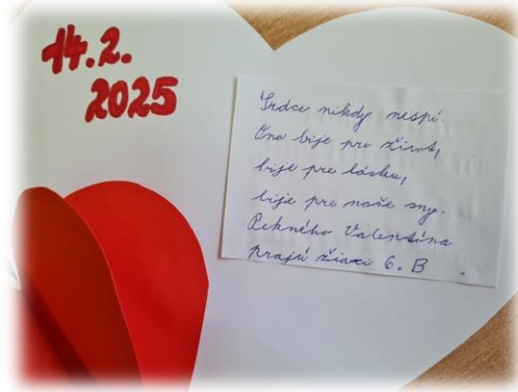 14.2.
2025
Srdce nikdy nespí.
Ono bije pre život,
bije pre lásku,
bije pre naše sny.
Pekného Valentína
Prajú žiaci 6. B